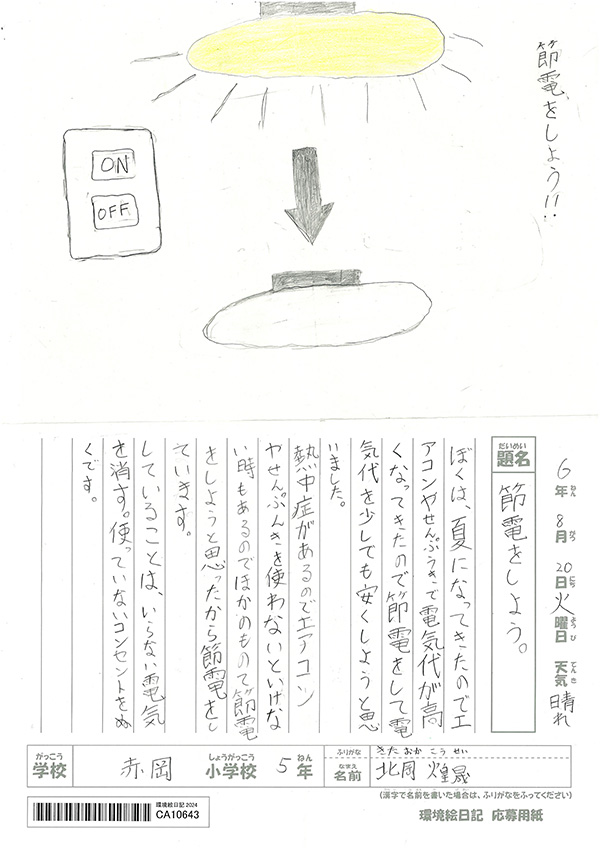 節電をしよう!!
ON
OFF
6年ねん 8月がつ 20日にち 火曜日ようび 天気てんき 晴れ
だいめい
題名
節電をしよう。
ぼくは、夏になってきたのでエ
アコンやせんぷうきで電気代が高
くなってきたので節電をして電
気代を少しでも安くしようと思
いました。
熱中症があるのでエアコン
やせんぷんきを使わないといけな
い時もあるのでほかのものて節電
をしようと思ったから節電をし
ていきます。
していることは、いらない電気
を消す。使っていないコンセントをぬ
くです。
がっこう
学校
赤岡
しょうがっこう
小学校
5
ねん
年
ふりがな
きたおか こうせい
なまえ
名前
北岡 煌晟
(漢字で名前を書いた場合は、ふりがなをふってください)
環境絵日記 2024
CA10643
環境絵日記 応募用紙